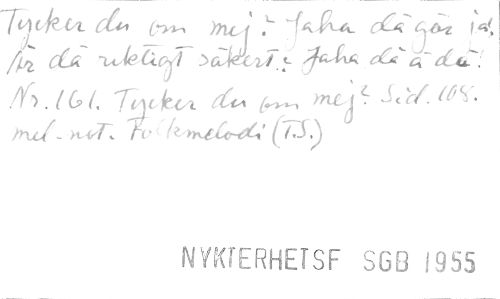 Tycker du om mej? Jaha dä gör ja!
Är dä riktigt säkert? Jaha dä ä dä!
Nr. 161. Tycker du om mej? Sid. 108.
mel.-not. Folkmelodi (T.S.)
NYKTERHETSF SGB 1955